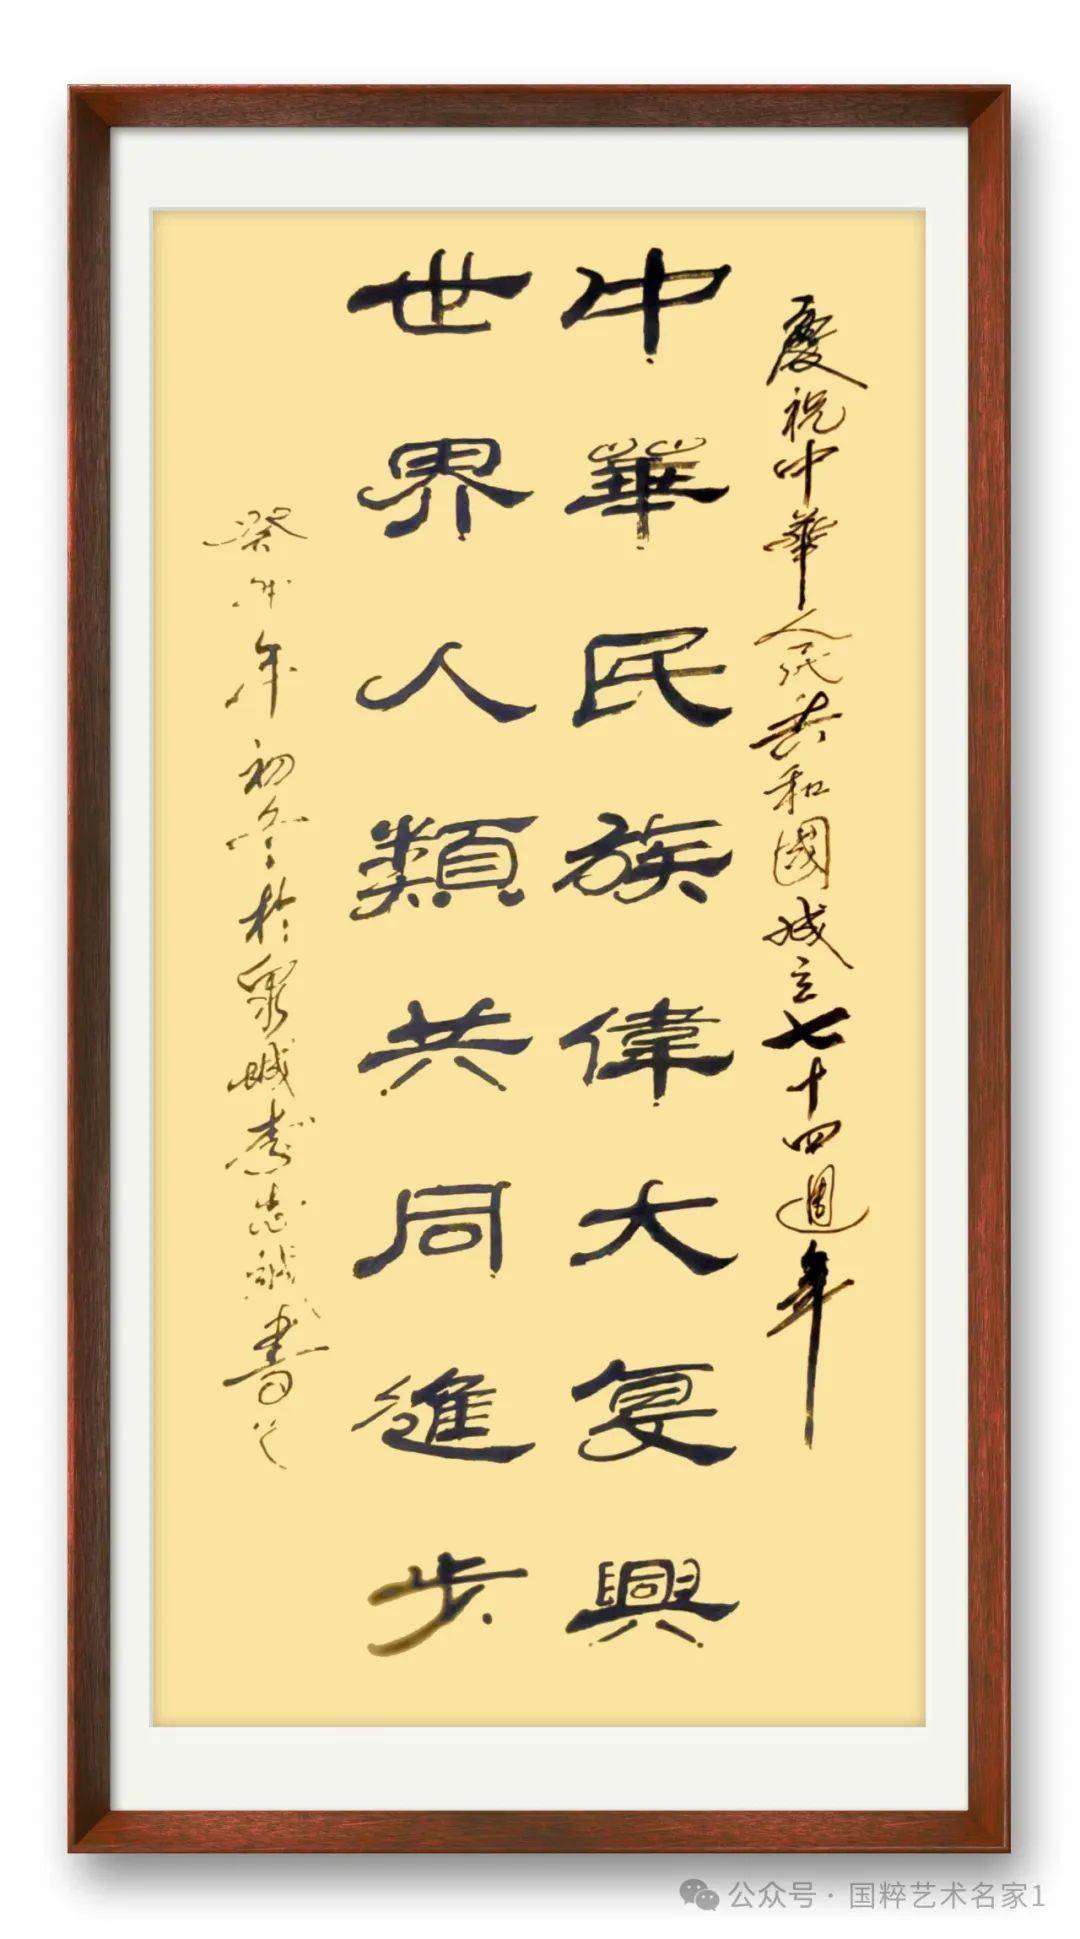 慶祝中華人民共和國成立七十四週年
中華民族偉大复興
世界人類共同進步
癸卯年初冬於泉城李志誠書
公众号 · 国粹艺术名家1